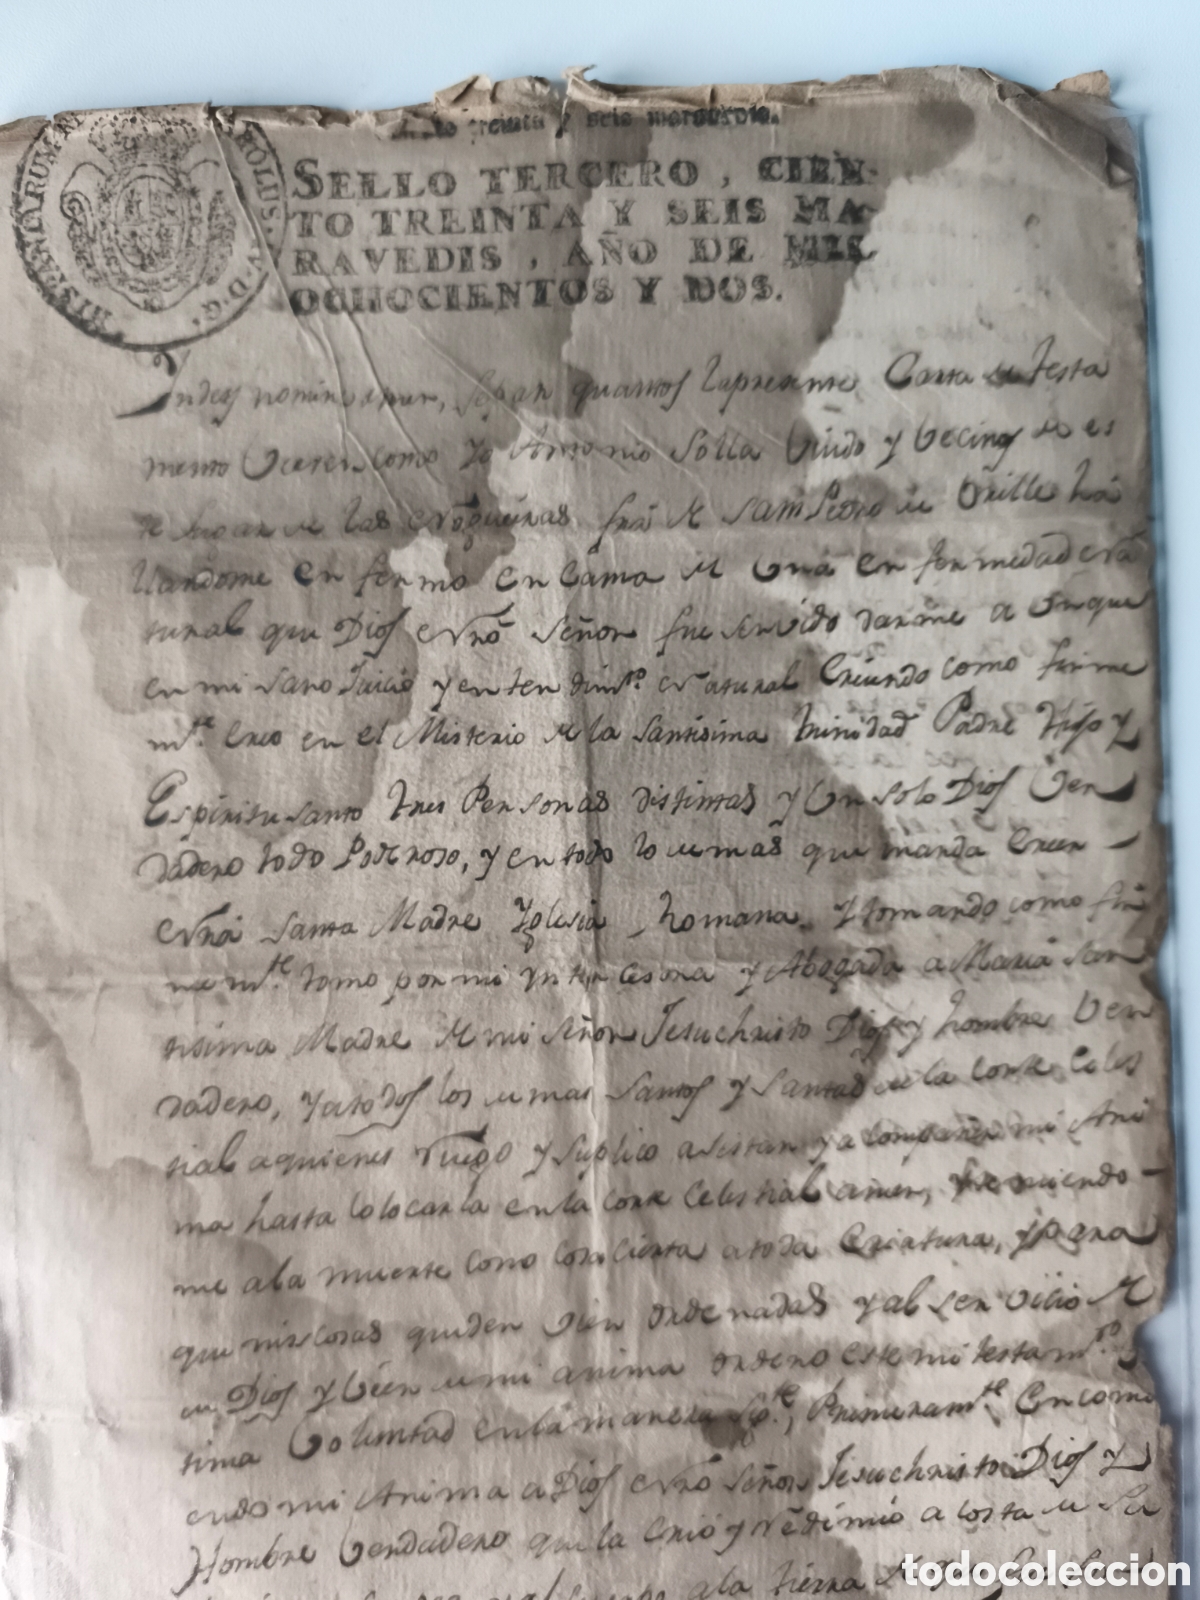 treinta y seis maravedis.
HISPANIARUM CAROLUS V D G
SELLO TERCERO, CIEN-
TO TREINTA Y SEIS MA-
RAVEDIS, AÑO DE MIL
OCHOCIENTOS Y DOS.
Indey nomine amen, sepan quantos lapresente Carta de Testa
mento Vieren como Yo Antonio Solla Viudo y Vecino de es
te lugar de las Nogueiras frã de Sam Pedro de há
llandome en fermo en Cama de Una en fermedad Na
tural que Dios Nrõ Señor fue servido darme a Unque
en mi sano Juicio y en ten dimto. Natural Creiendo como firme
mte. Creo en el Misterio de la santisima trinidad Padre Hijo y
Espiritu santo tres Personas distintas y Un solo Dios Ver
dadero todo Poderoso, y en todo lo demas que manda Creer
Nrã santa Madre Yglesia Romana, y tomando como fir
me mte. tomo por mi yntercesora y Abogada a Maria san
tisima Madre de mi Señor Jesuchristo Dios y hombre Ver
dadero, yatodos los demas santos y santas de la corte Celes
tial aquienes ruego y suplico asistan ya compañen mi Ani
ma hasta Colocarla en la corte Celestial amen, y temiendo
me ala muerte como cosa cierta atoda Criatura, ypara
que mis cosas queden vien ordenadas yal ser vicio de
Dios y Vien de mi anima ordeno este mi testamto. y
tima Voluntad en la manera sigte., Primeramte. Encomi
endo mi Anima a Dios Nrõ Señor Jesuchristo Dios y
Hombre Verdadero que la Crió y redimio a costa de su
ala tierra
todocoleccion